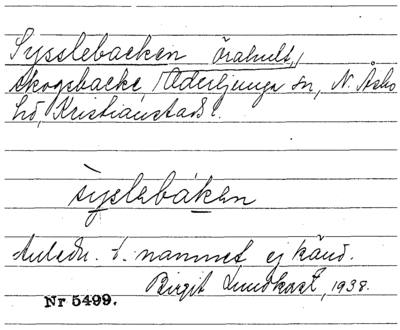 Sysslebacken Örahult,
skogsbacke, Oderljunga sn, N. Åsbo
hd, Kristianstads l.
syslebáken
Anledn. t. namnet ej känd.
Birgit Lundkvist, 1938.
Nr 5499.